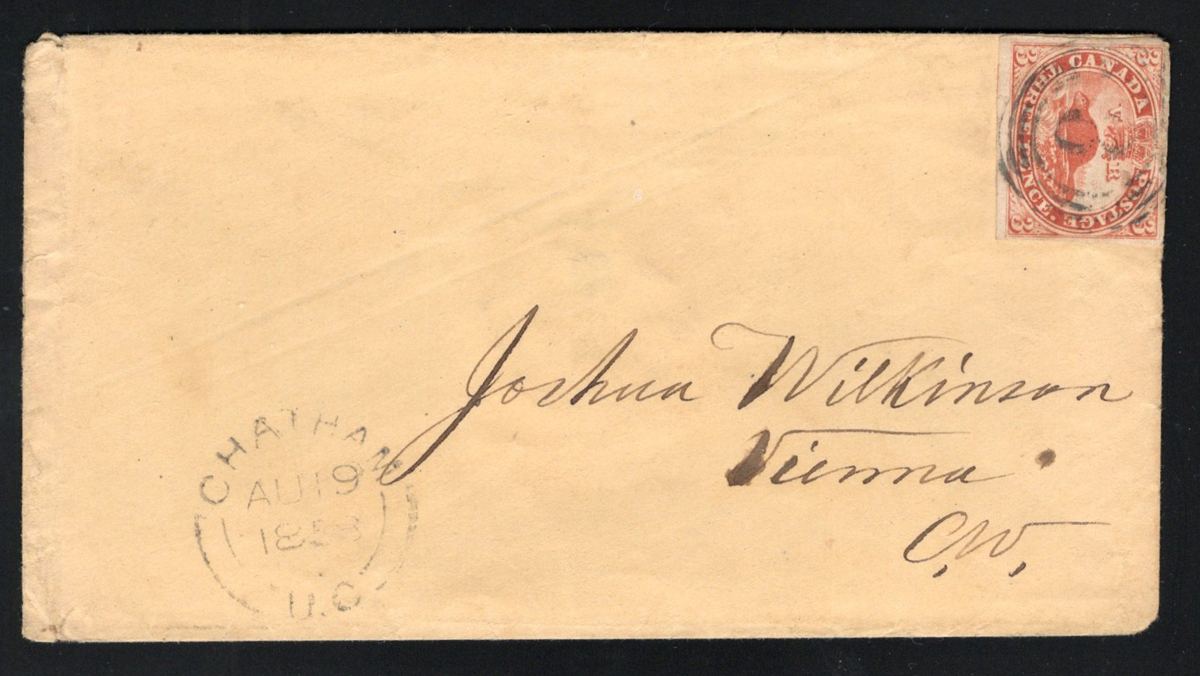 CANADA POSTAGE THREE PENCE.
3 3 3 3
V R
Joshua Wilkinson
Vienna
C.W.
CHATHAM
AU 19
1858
U.C